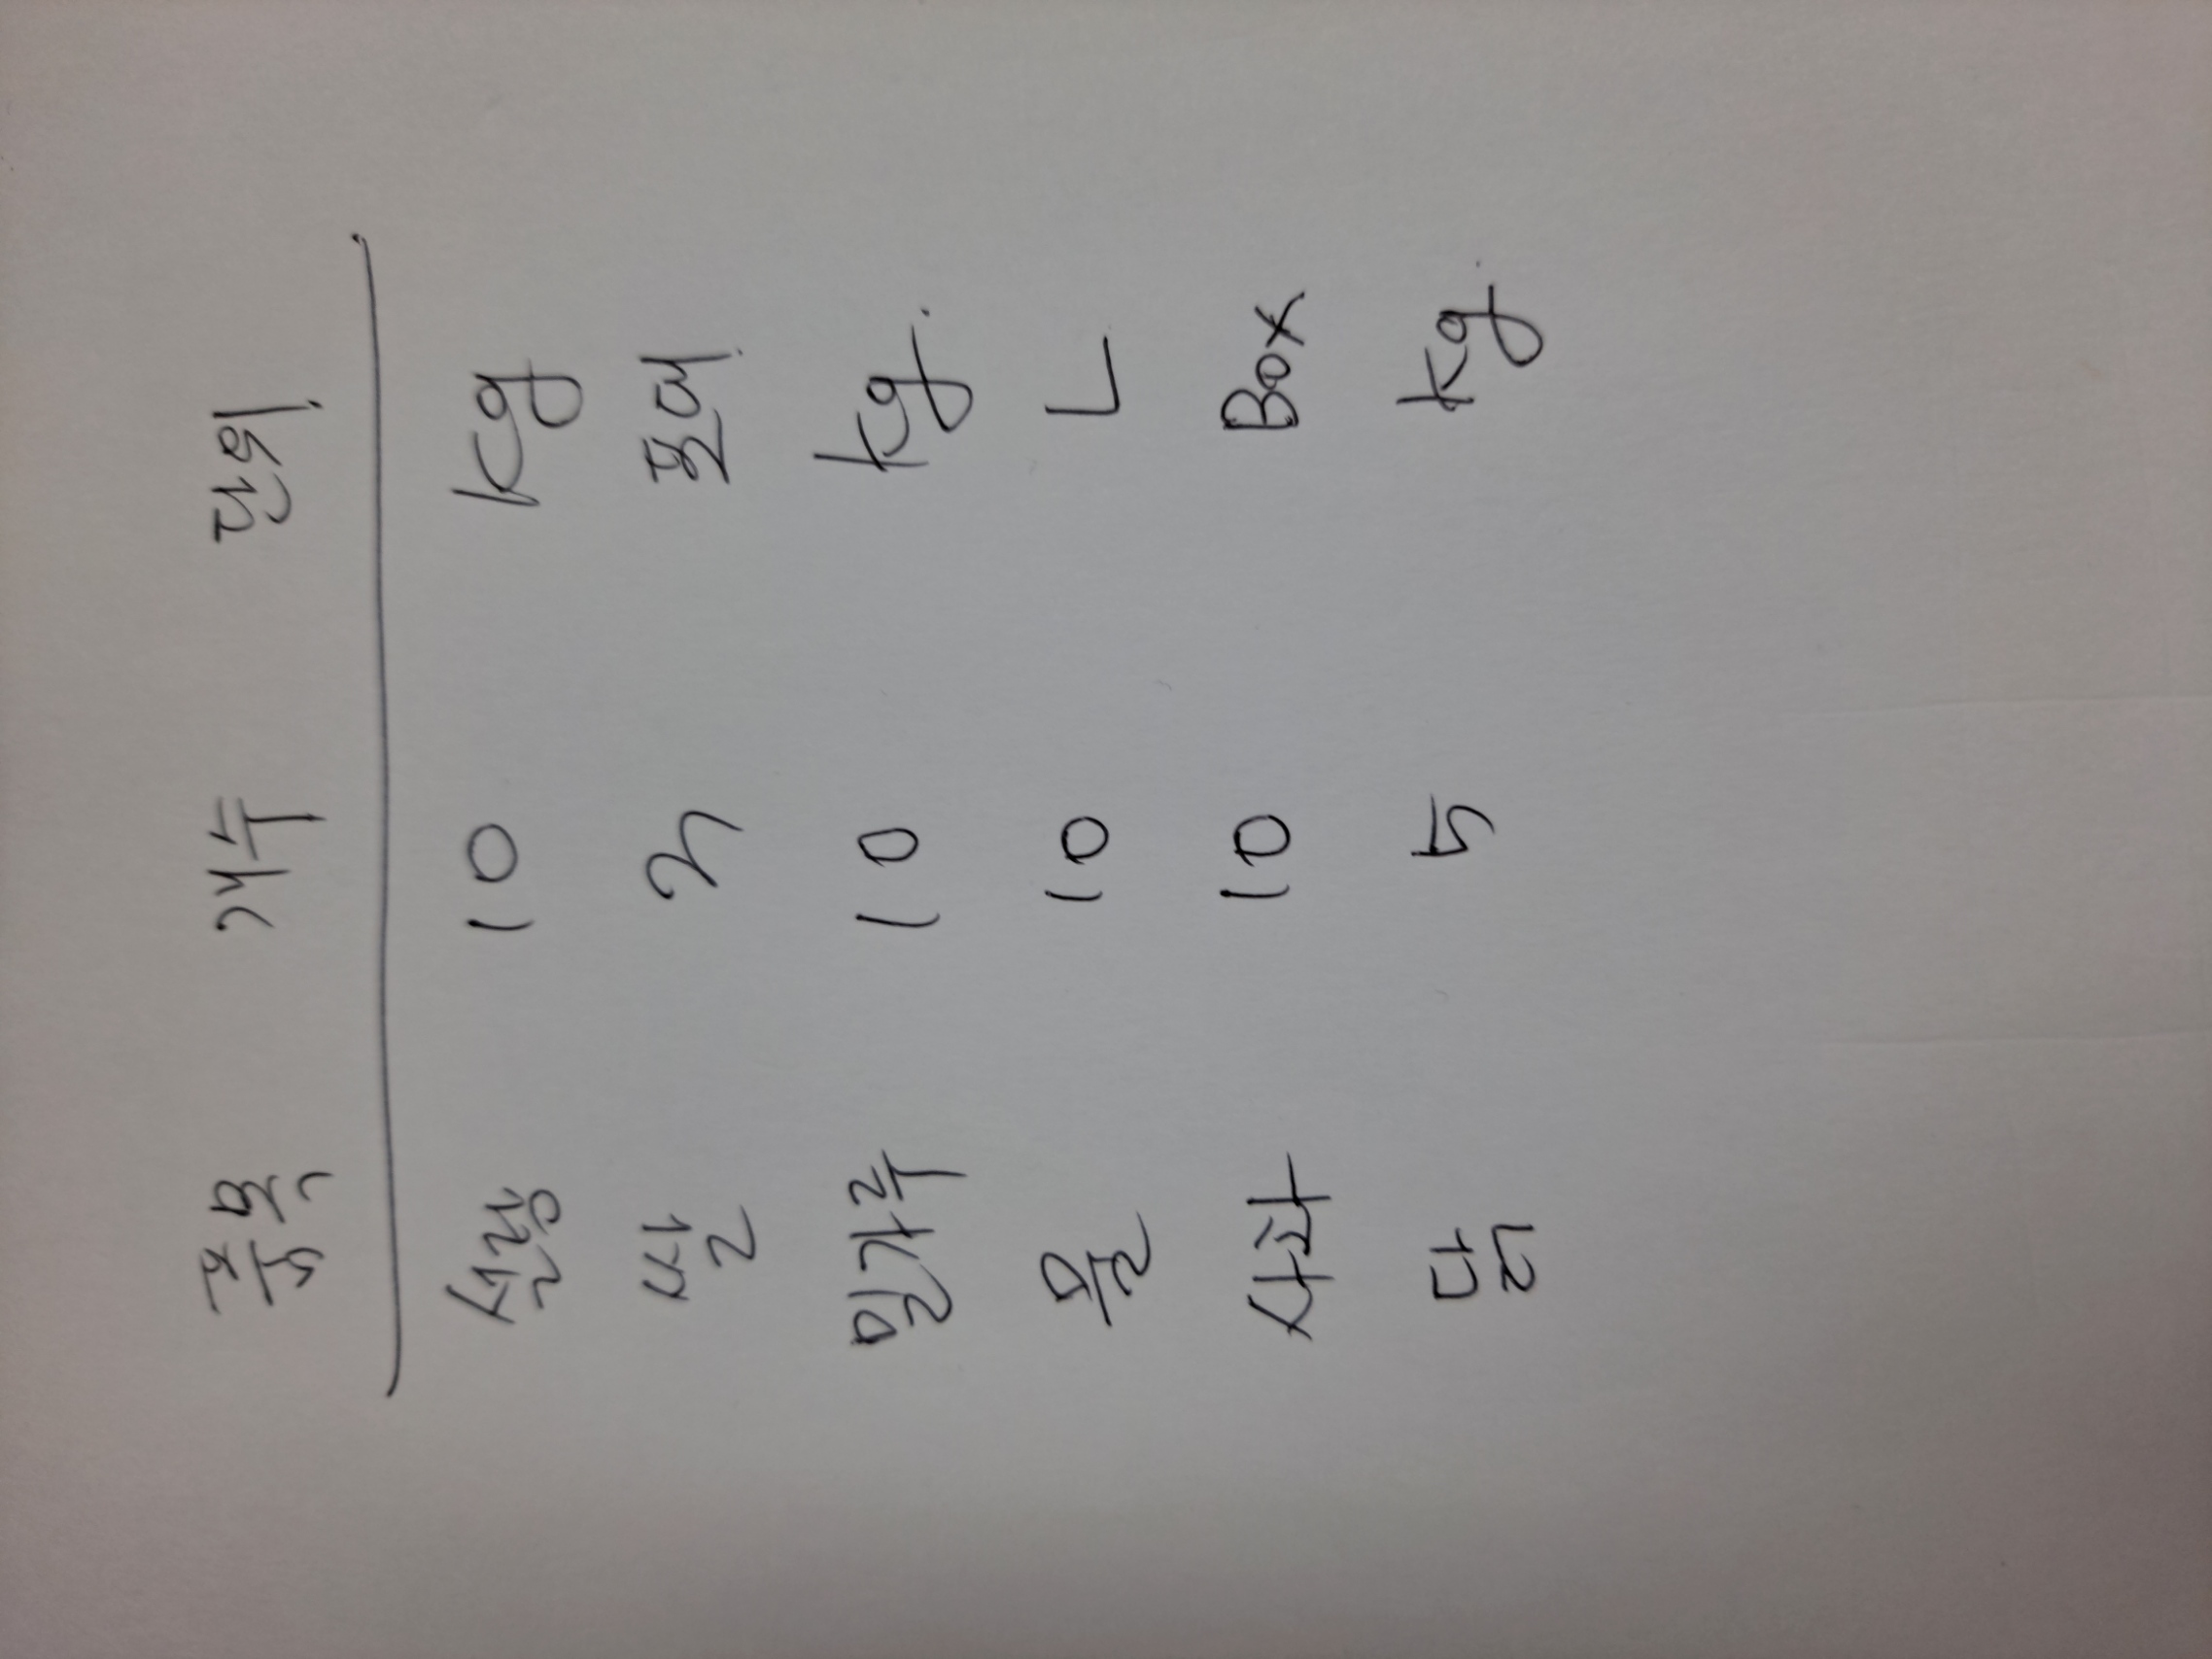 품목 개수 단위
설탕 10 kg
쌀 3 포대
밀가루 10 kg.
물 10 L
사과 10 Box
닭 5 kg.